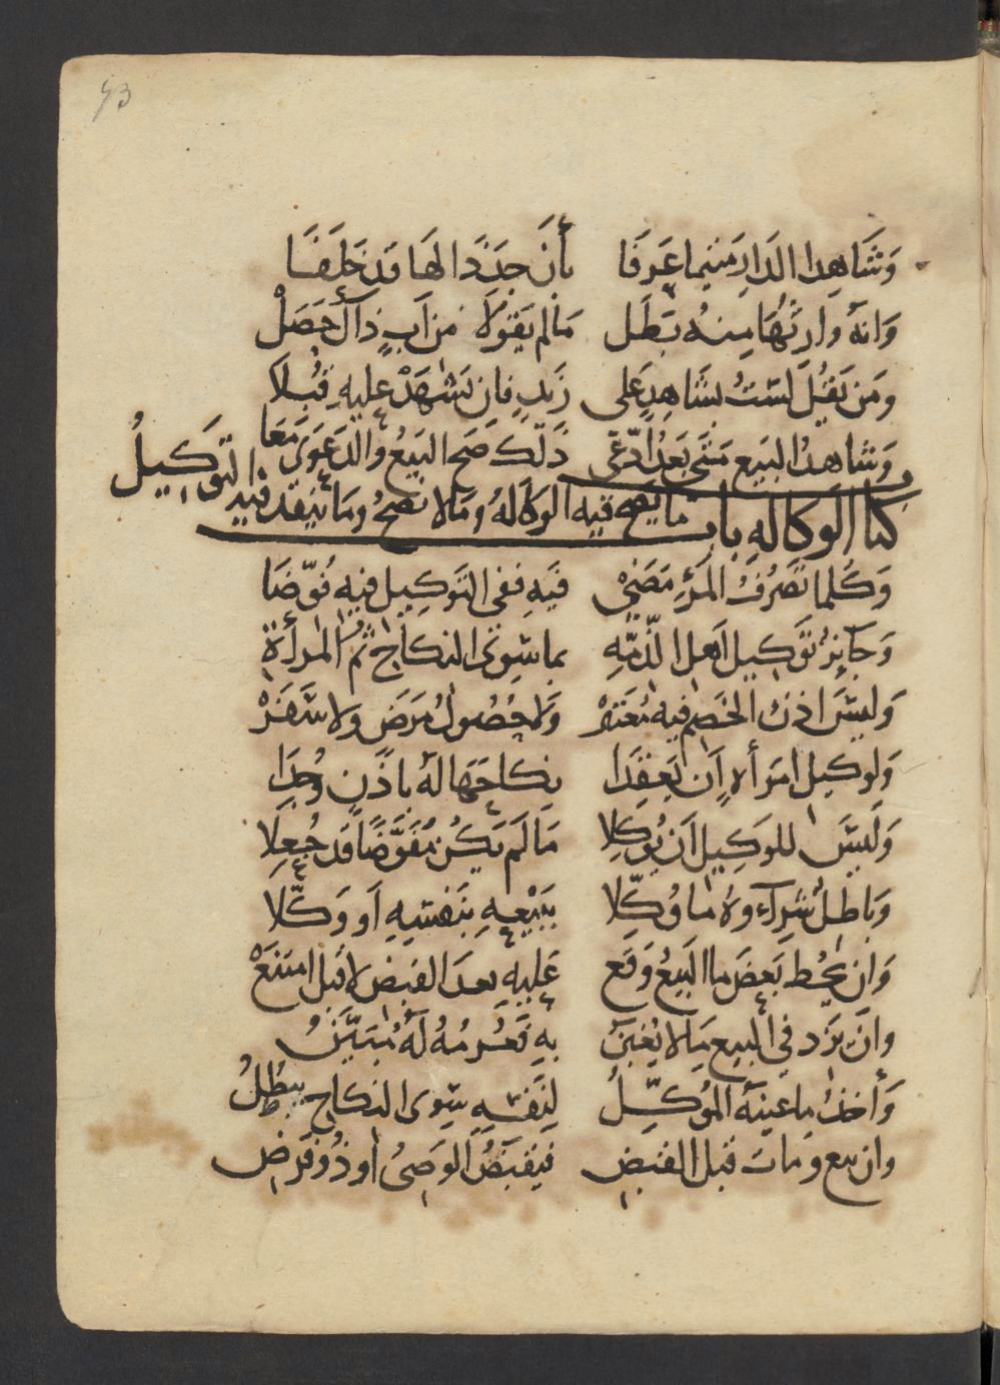 93
وَشَاهِدا الدَارِ مَتى ما عَرَفَا بأنَ جدَدَا لهَا قد خَلَفَا
وَانهُ وَارثهَا مِنهُ بَطَل مَالم يَقُولا من اَبٍ ذاك حَصَلْ
ومَن يَقُل لسْتُ بشَاهِدٍ عَلى زَيدٍ فان يَشهَدْ عليهِ قُبِلا
وَشاهدُ البَيع مَتى بَعدُ ادّعَى ذَلك صَح البَيعُ والدَعَوَى مَعَا
كتا الوَكالهِ باب ما يصح فيه الوكالهُ وما لا تصحُ وما ينفذ فيه التوَكِيلُ
وَكُلما تصَرُفُ المَرْءِ مَضَى فيَهِ ففي التَوكِيل فيهِ فُوّضَا
وَجَايزٌ تَوكِيل اَهل الذّمّهِ بما سِوَى النكاح ثُمّ المرأةِ
وَليسَ اذنُ الخصمِ فيه مُعتَبَرْ وَلا حُصُولُ مَرَض ولا سَفَرْ
وَلوكيل امرَأةٍ اَن يَعقِدَا نِكاحَهَا لهُ باذنٍ وُجِدَا
وَليسَ للوَكِيل اَن يُوَكِلا مَا لَم يَكُن مُفَوَّضًا قد جُعِلا
وَباطلٌ شِرآءُهُ ما وُكِّلا ببَيْعِهِ بنَفسِهِ اَو وَكَّلا
وَان يَحُط بَعضَ ما البَيعُ وَقَع عَليهِ بعدَ القَبضِ لا قبل امتنَعْ
وانْ يَزد في البيع مَا لا يُغبَنُ بهِ تَغرُمُهُ لهُ مُبَيَّنُ
وَأخذُ ما عَينَهُ المُوَكِّلُ لِنَفسِهِ سِوى النكاح يبطُلُ
وان يبع ومات قبل القبضِ فيَقبَضُ الوَصِىُ اوذُو فَرَضِ